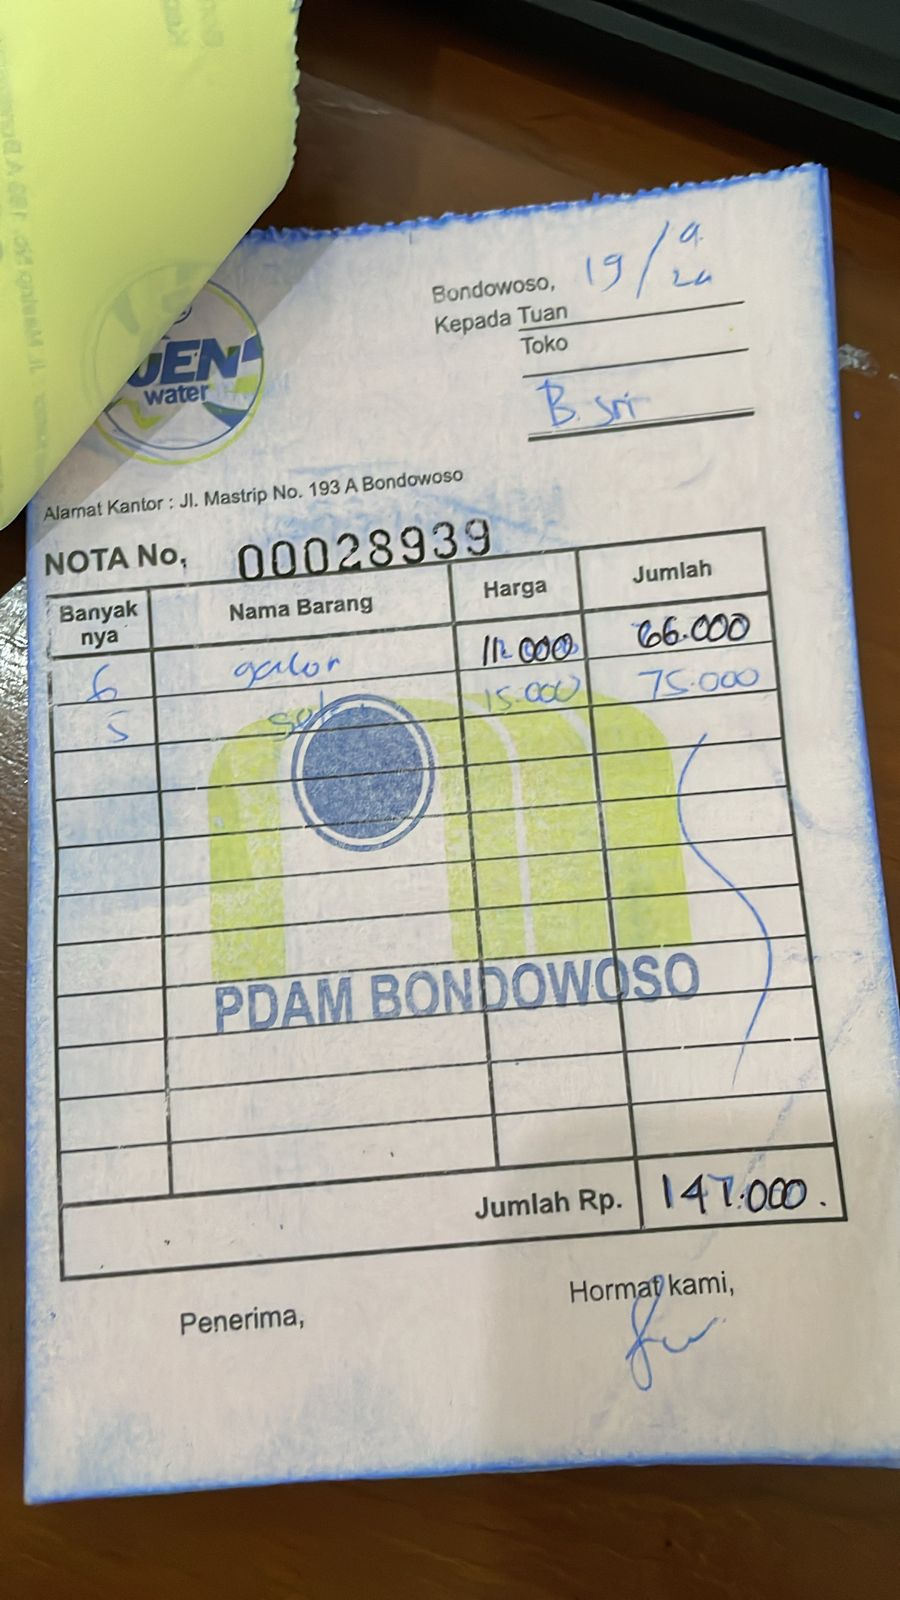 JEN
water
Bondowoso, 19/9
Kepada Tuan
Toko
B. Sri
Alamat Kantor : Jl. Mastrip No. 193 A Bondowoso
NOTA No, 00028939
Banyak nya Nama Barang Harga Jumlah
6 galon 11.000 66.000
5 15.000 75.000
PDAM BONDOWOSO
Jumlah Rp. 141.000.
Penerima, Hormat kami,